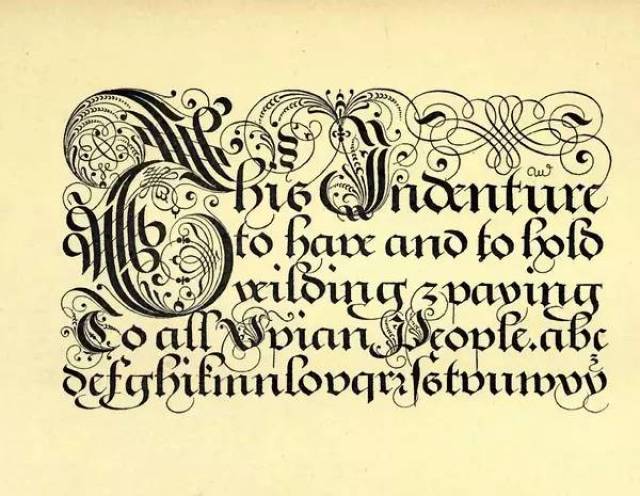 This Indenture
to have and to hold
veilding & paving
To all Vpian People. abc
defghiklmnlopqrzſstvuwvyz